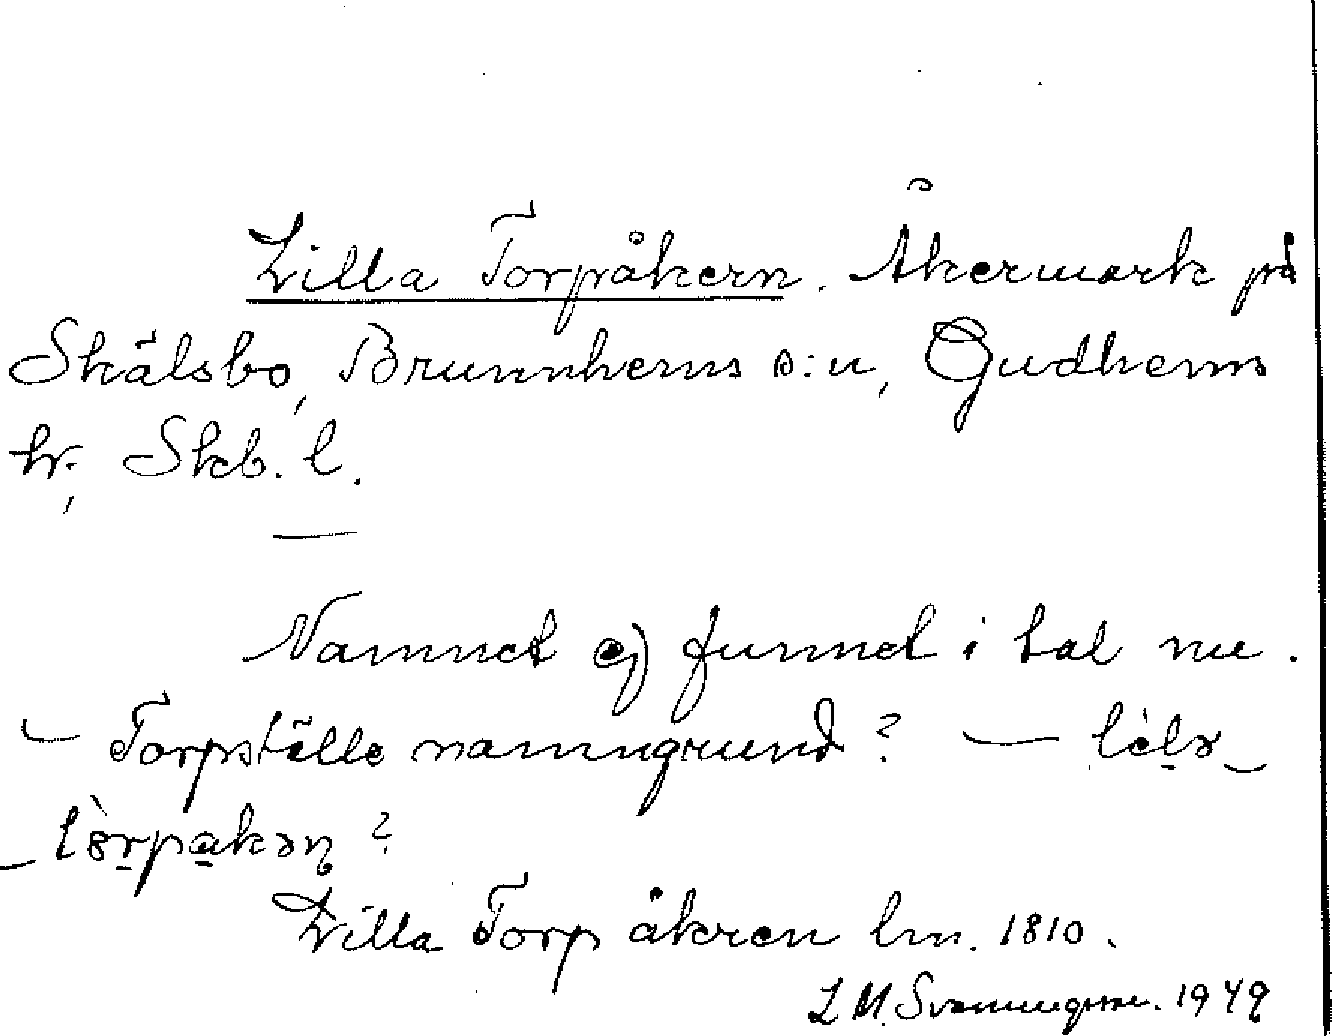 Lilla Torpåkern. Åkermark på
Skälsbo, Brunnhems s:n, Gudhems
hr, Skb. l.
—
Namnet ej funnet i tal nu.
— Torpställe namngrund? —
Lilla Torp åkren lm. 1810.
L M. Svenungsson. 1949